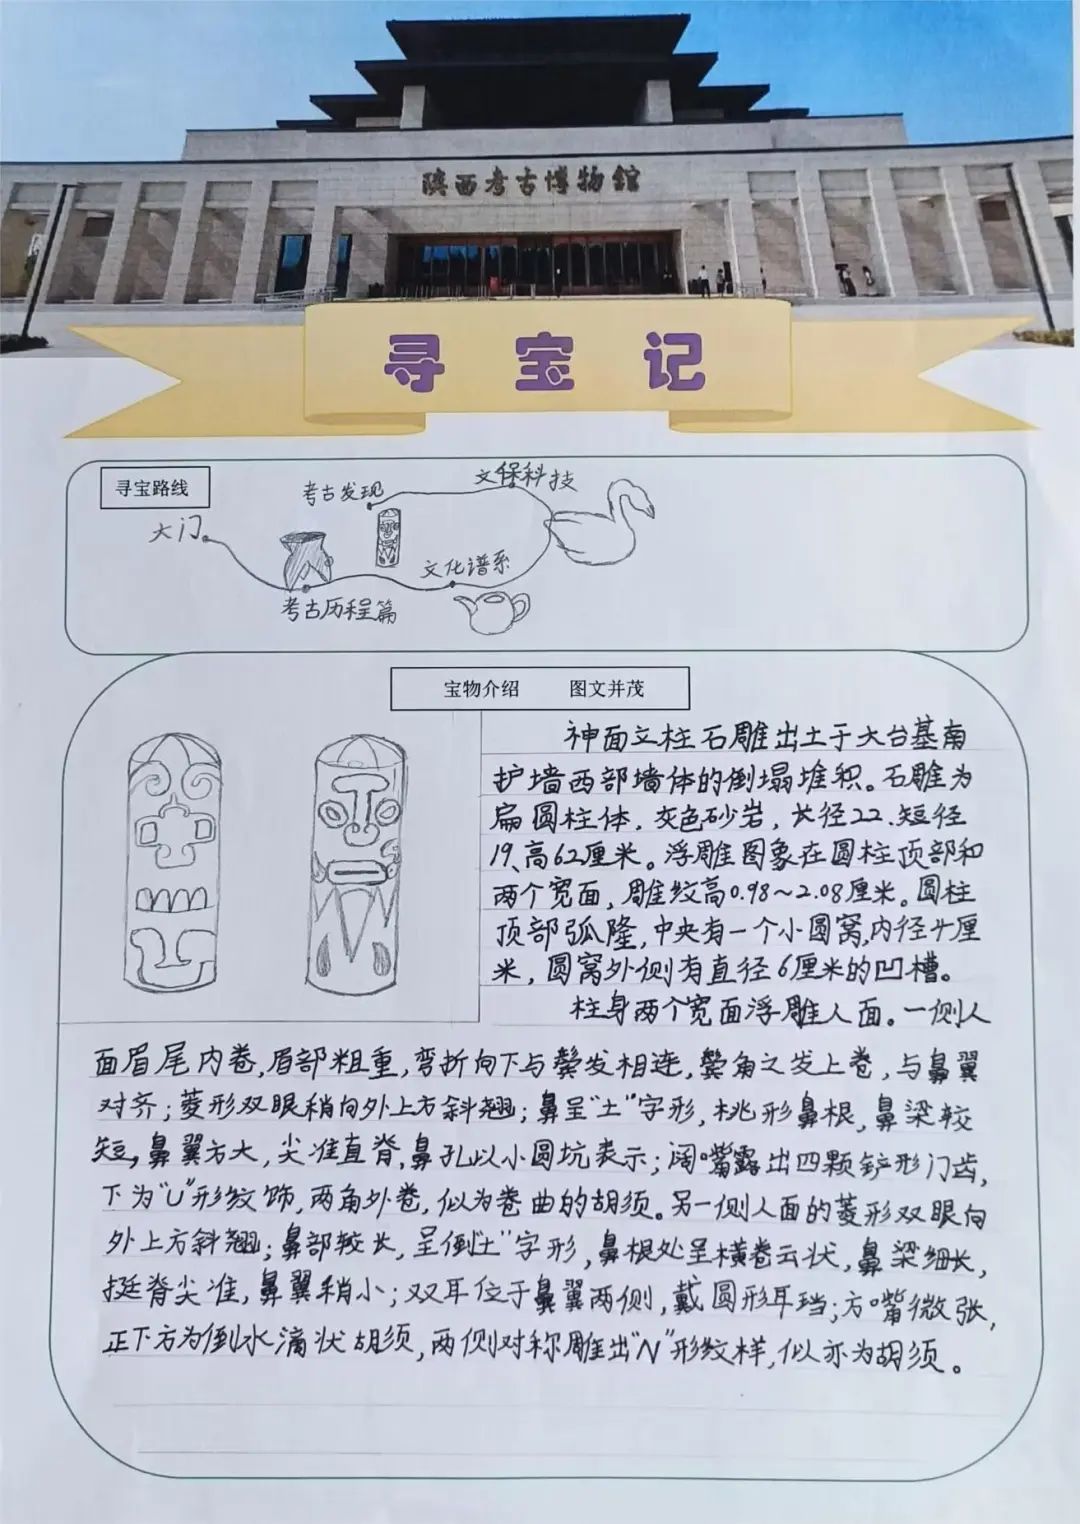 陕西考古博物館
寻宝记
寻宝路线
大门
考古发现
文保科技
文化谱系
考古历程篇
宝物介绍 图文并茂
神面立柱石雕出土于大台基南
护墙西部墙体的倒塌堆积。石雕为
扁圆柱体，灰色砂岩，长径22、短径
19、高62厘米。浮雕图象在圆柱顶部和
两个宽面，雕纹高0.98~2.08厘米。圆柱
顶部弧隆，中央有一个小圆窝，内径4厘
米，圆窝外侧有直径6厘米的凹槽。
柱身两个宽面浮雕人面。一侧人
面眉尾内卷，眉部粗重，弯折向下与鬓发相连，鬓角之发上卷，与鼻翼
对齐；菱形双眼稍向外上方斜翘；鼻呈"土"字形，桃形鼻根，鼻梁较
短，鼻翼方大，尖准直脊，鼻孔以小圆坑表示；阔嘴露出四颗铲形门齿，
下为"U"形纹饰，两角外卷，似为卷曲的胡须。另一侧人面的菱形双眼向
外上方斜翘；鼻部较长，呈倒土"字形，鼻根处呈横卷云状，鼻梁细长，
挺脊尖准，鼻翼稍小；双耳位于鼻翼两侧，戴圆形耳珰；方嘴微张，
正下方为倒水滴状胡须，两侧对称雕出"N"形纹样，似亦为胡须。